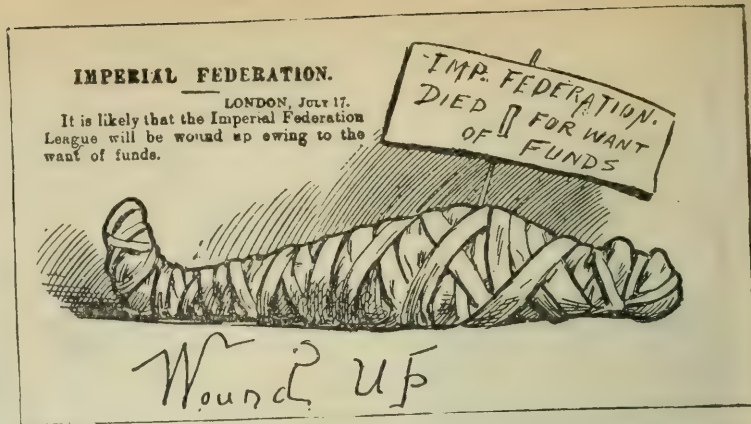 IMPERIAL FEDERATION.
LONDON, JULY 17.
It is likely that the Imperial Federation
League will be wound up owing to the
want of funds.
IMP. FEDERATION.
DIED FOR WANT
OF FUNDS
Wound Up